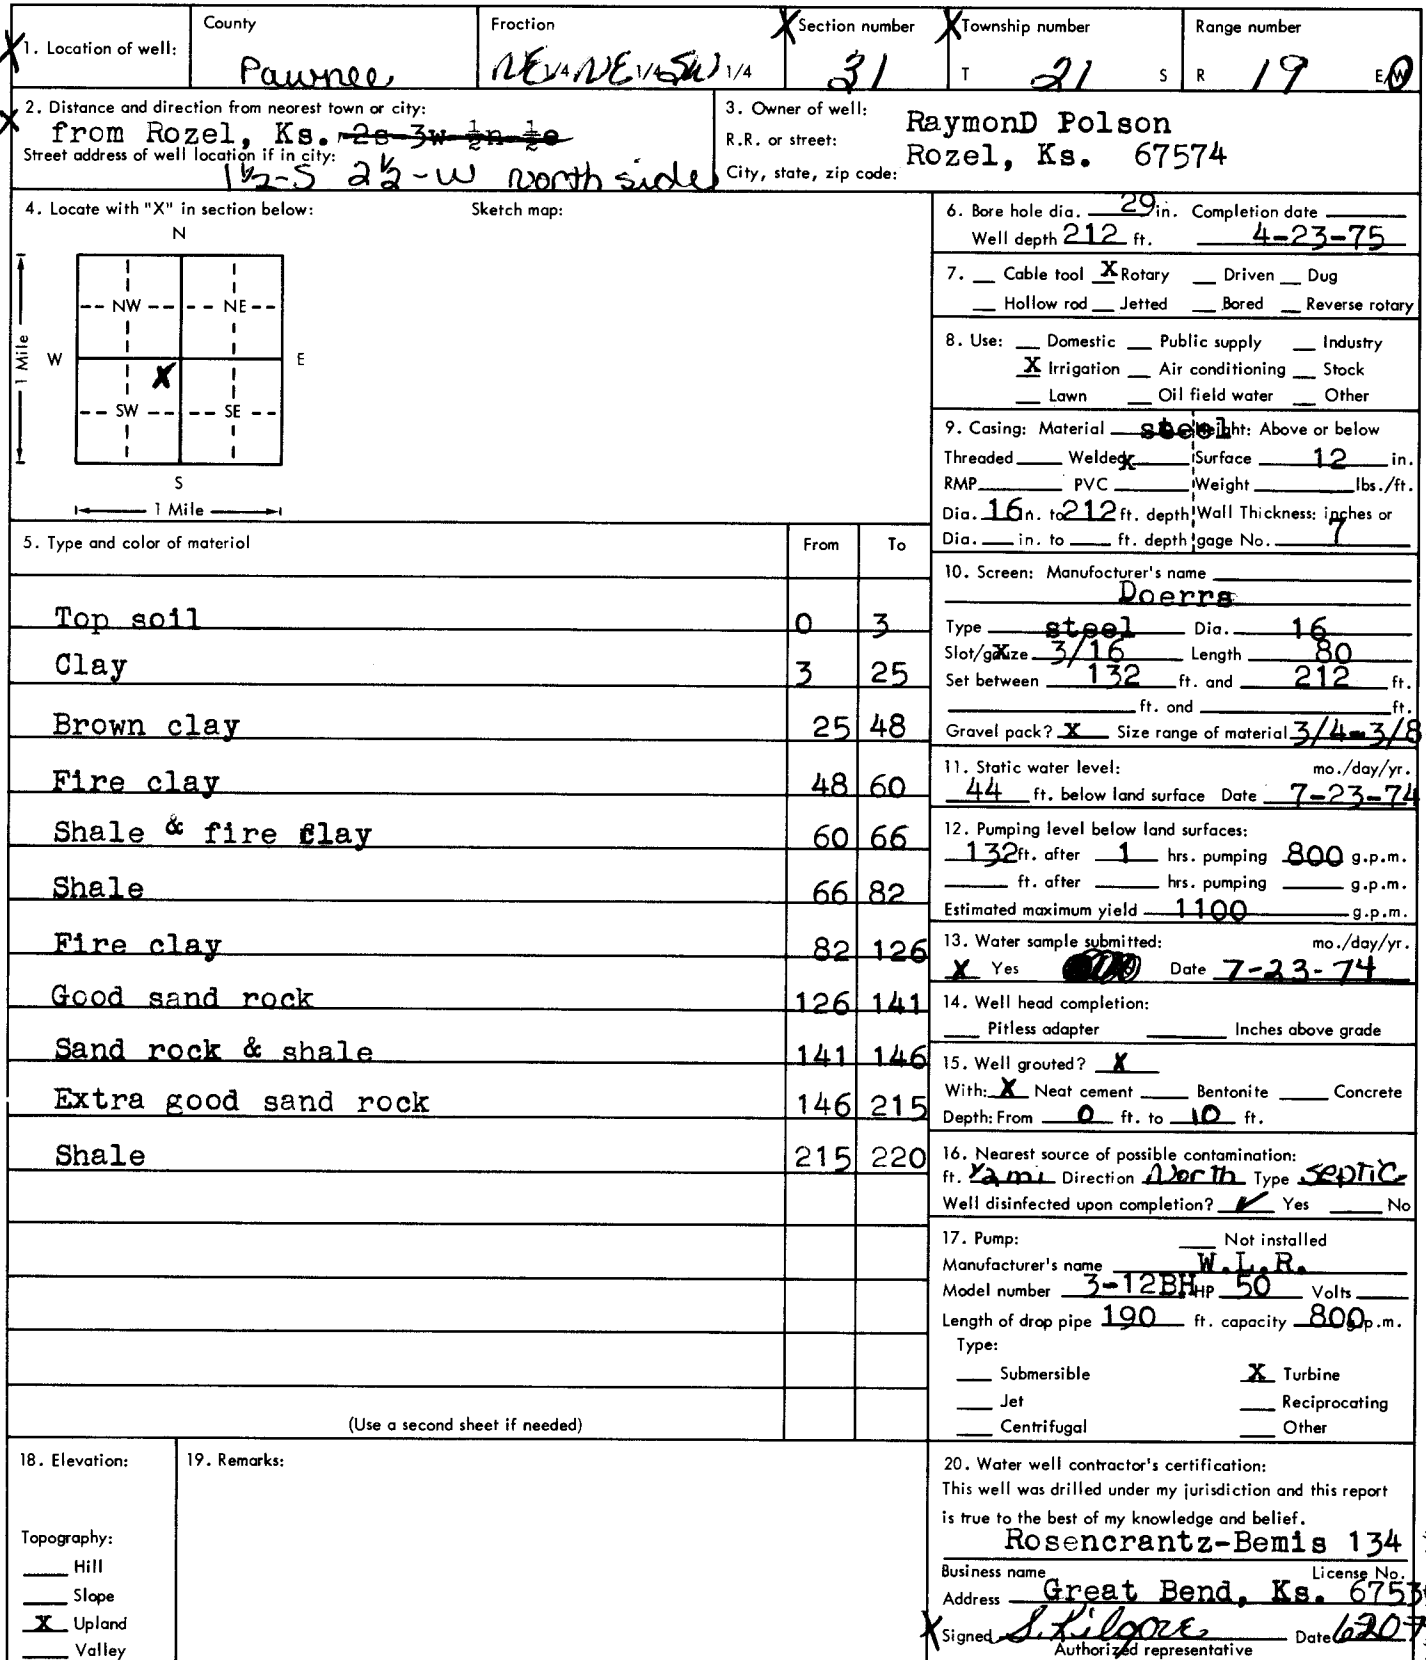 County
Froction
Section number
Township number
Range number
1. Location of well:
Pawnee
NE 1/4 NE 1/4 SW 1/4
31
T 21 S
R 19 E W
2. Distance and direction from neorest town or city:
from Rozel, Ks. 2s 3w ½n ½e
Street address of well location if in city:
1½-S 2½-W north side
3. Owner of well:
R.R. or street:
City, state, zip code:
RaymonD Polson
Rozel, Ks. 67574
4. Locate with "X" in section below:
Sketch map:
N
NW NE
W E
X
SW SE
S
1 Mile
1 Mile
5. Type and color of materiol From To
Top soil 0 3
Clay 3 25
Brown clay 25 48
Fire clay 48 60
Shale & fire clay 60 66
Shale 66 82
Fire clay 82 126
Good sand rock 126 141
Sand rock & shale 141 146
Extra good sand rock 146 215
Shale 215 220
(Use a second sheet if needed)
6. Bore hole dia. 29 in. Completion date
Well depth 212 ft. 4-23-75
7. Cable tool X Rotary Driven Dug
Hollow rod Jetted Bored Reverse rotary
8. Use: Domestic Public supply Industry
X Irrigation Air conditioning Stock
Lawn Oil field water Other
9. Casing: Material steel Height: Above or below
Threaded Welded X Surface 12 in.
RMP PVC Weight lbs./ft.
Dia. 16 in. to 212 ft. depth Wall Thickness: inches or
Dia. in. to ft. depth gage No. 7
10. Screen: Manufocturer's name
Doerrs
Type steel Dia. 16
Slot/gauze X 3/16 Length 80
Set between 132 ft. and 212 ft.
ft. and ft.
Gravel pack? X Size range of material 3/4-3/8
11. Static water level: mo./day/yr.
44 ft. below land surface Date 7-23-74
12. Pumping level below land surfaces:
132 ft. after 1 hrs. pumping 800 g.p.m.
ft. after hrs. pumping g.p.m.
Estimated maximum yield 1100 g.p.m.
13. Water sample submitted: mo./day/yr.
X Yes Date 7-23-74
14. Well head completion:
Pitless adapter Inches above grade
15. Well grouted? X
With: X Neat cement Bentonite Concrete
Depth: From 0 ft. to 10 ft.
16. Nearest source of possible contamination:
ft. ½ mi Direction North Type septic
Well disinfected upon completion? ✓ Yes No
17. Pump: Not installed
Manufacturer's name W.L.R.
Model number 3-12BH HP 50 Volts
Length of drop pipe 190 ft. capacity 800 g.p.m.
Type:
Submersible X Turbine
Jet Reciprocating
Centrifugal Other
18. Elevation:
19. Remarks:
Topography:
Hill
Slope
X Upland
Valley
20. Water well contractor's certification:
This well was drilled under my jurisdiction and this report
is true to the best of my knowledge and belief.
Rosencrantz-Bemis 134
Business name License No.
Address Great Bend, Ks. 6753
Signed S. Kilgore Date
Authorized representative